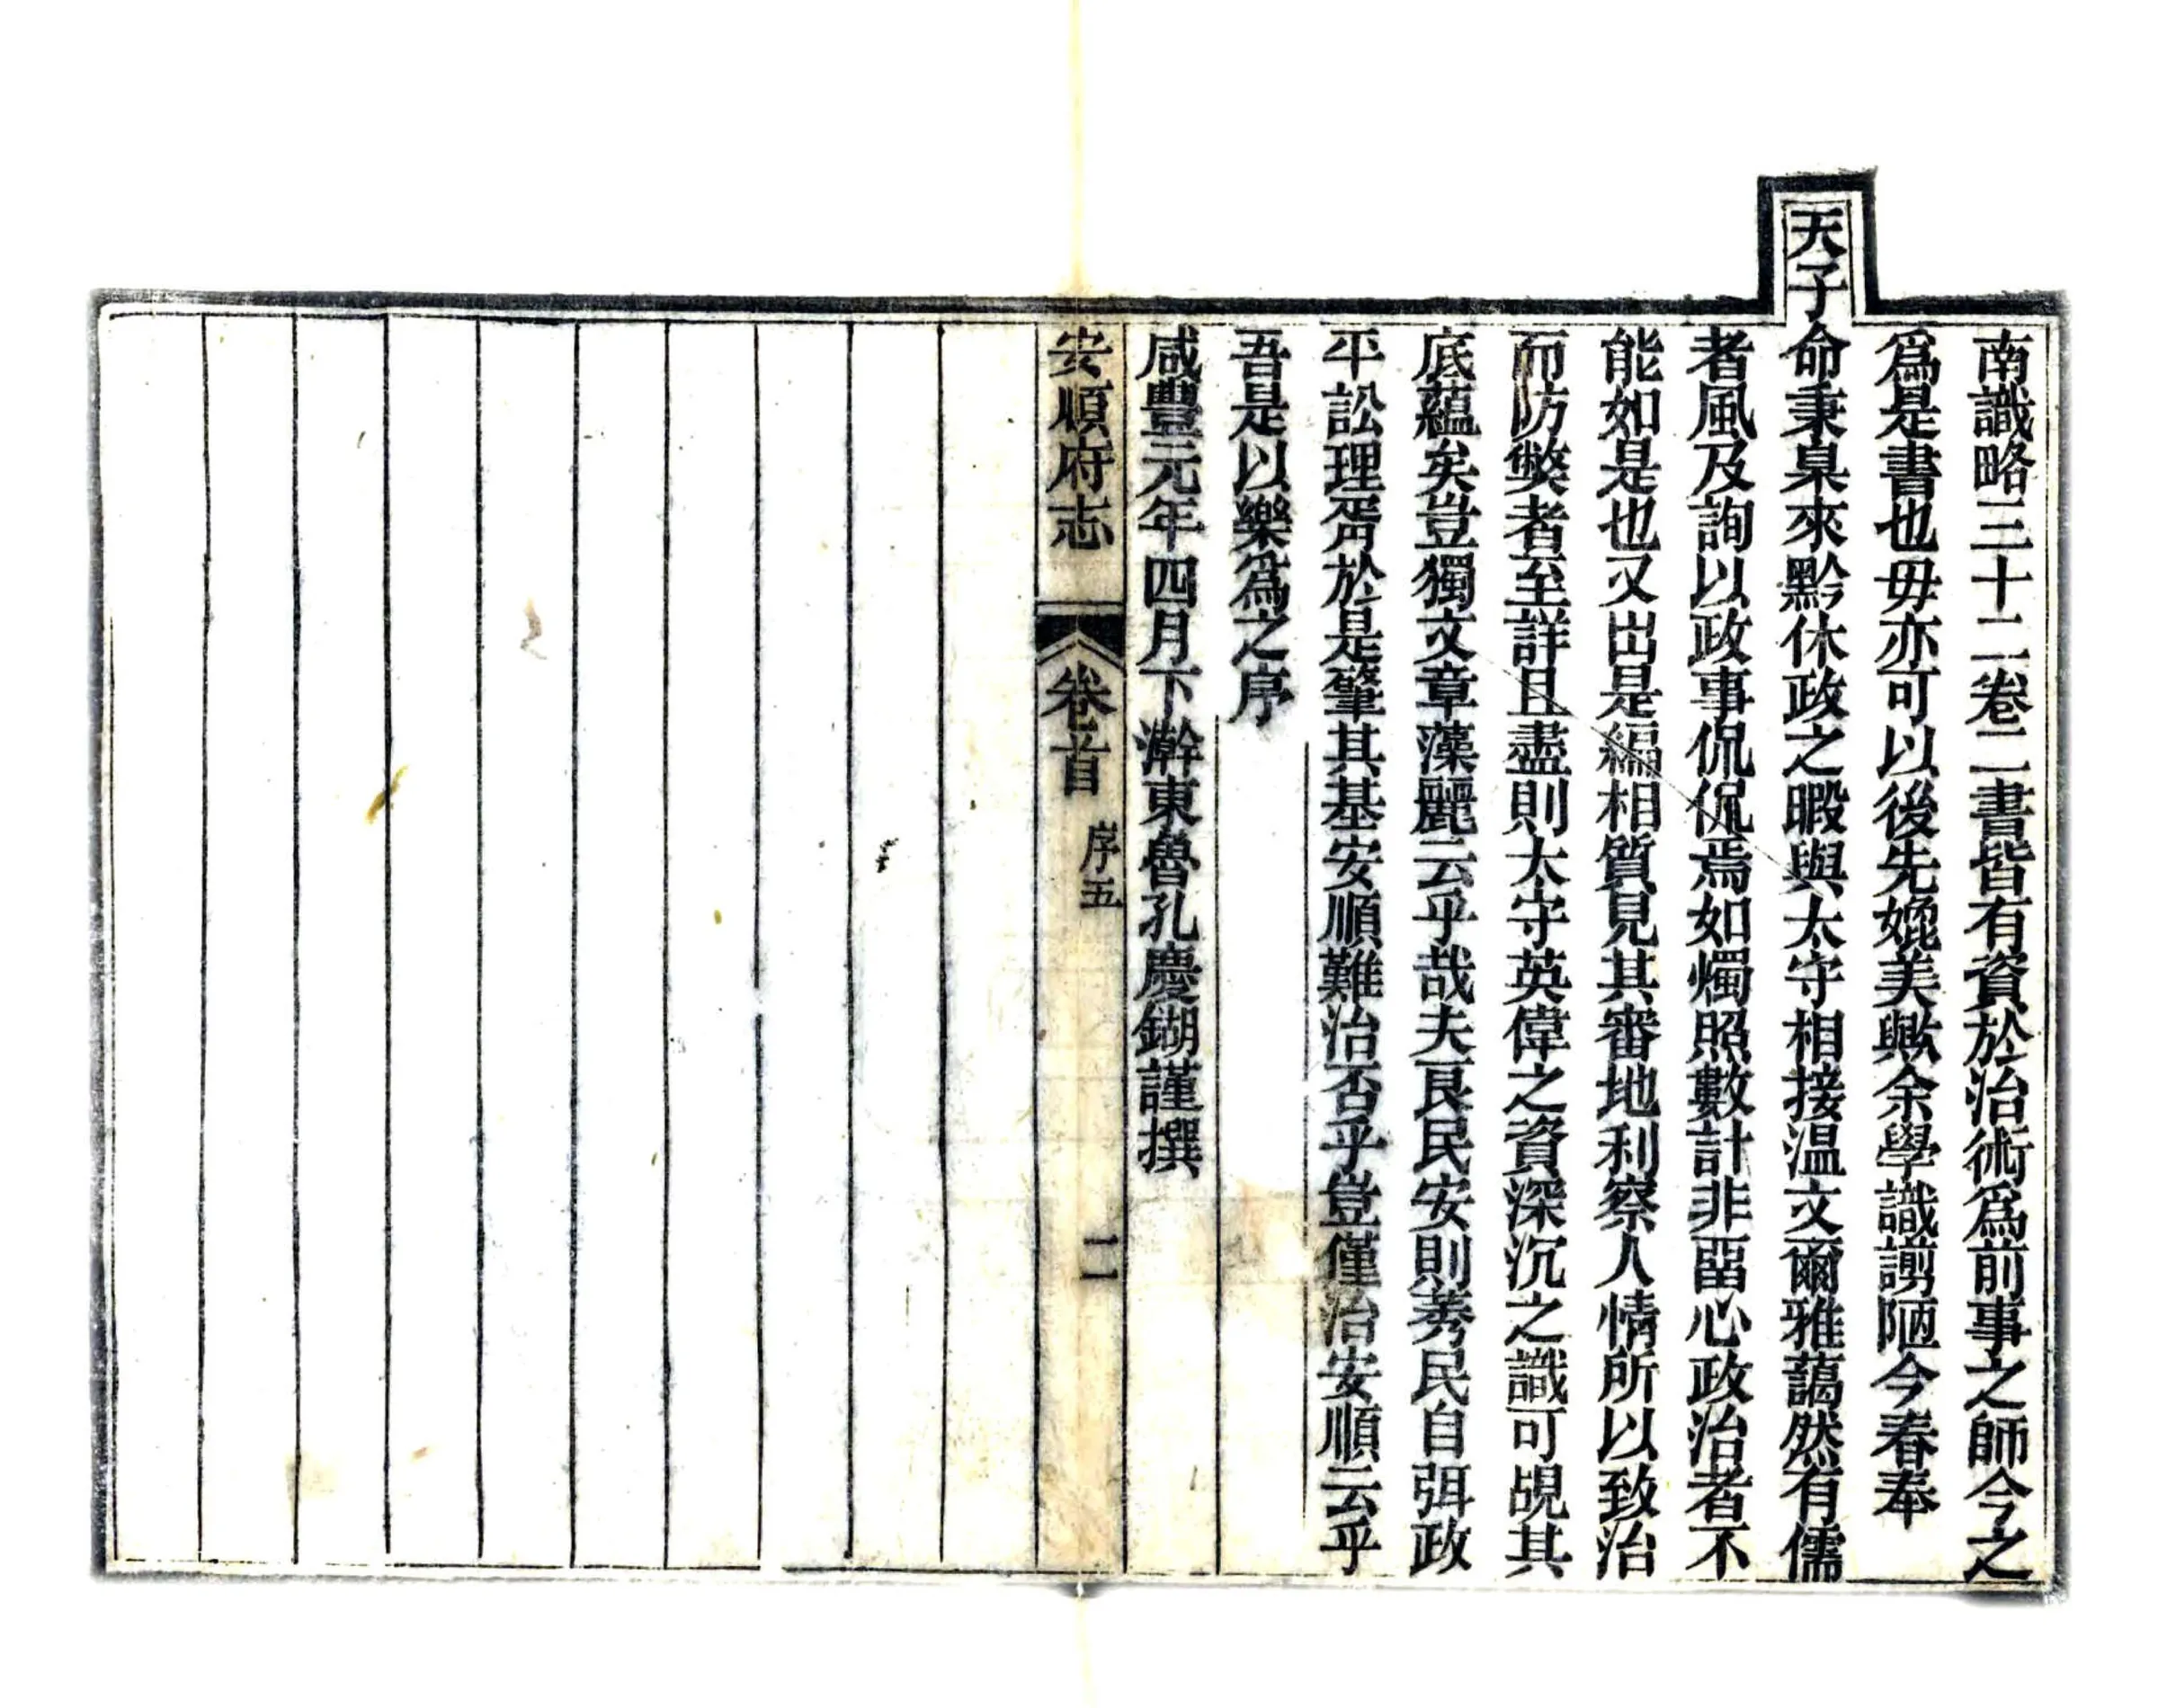 南識略三十二卷二書皆有資於治術爲前事之師今之
爲是書也毋亦可以後先媲美歟余學識謭陋今春奉
天子命秉臬來黔休政之暇與太守相接温文爾雅藹然有儒
者風及詢以政事侃侃焉如燭照數計非畱心政治者不
能如是也又出是編相質見其審地利察人情所以致治
而防獘者至詳且盡則太守英偉之資深沉之識可覘其
底蘊矣豈獨文章藻麗云乎哉夫良民安則莠民自弭政
平訟理胥於是肇其基安順難治否乎豈僅治安順云乎
吾是以樂爲之序
咸豐元年四月下澣東魯孔慶鍸謹撰
安順府志 卷首 序五 二